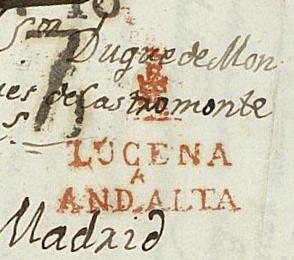 10
Sor Duque de Mon
ues de Castromonte
7
LUCENA
A
ANDALTA
Madrid